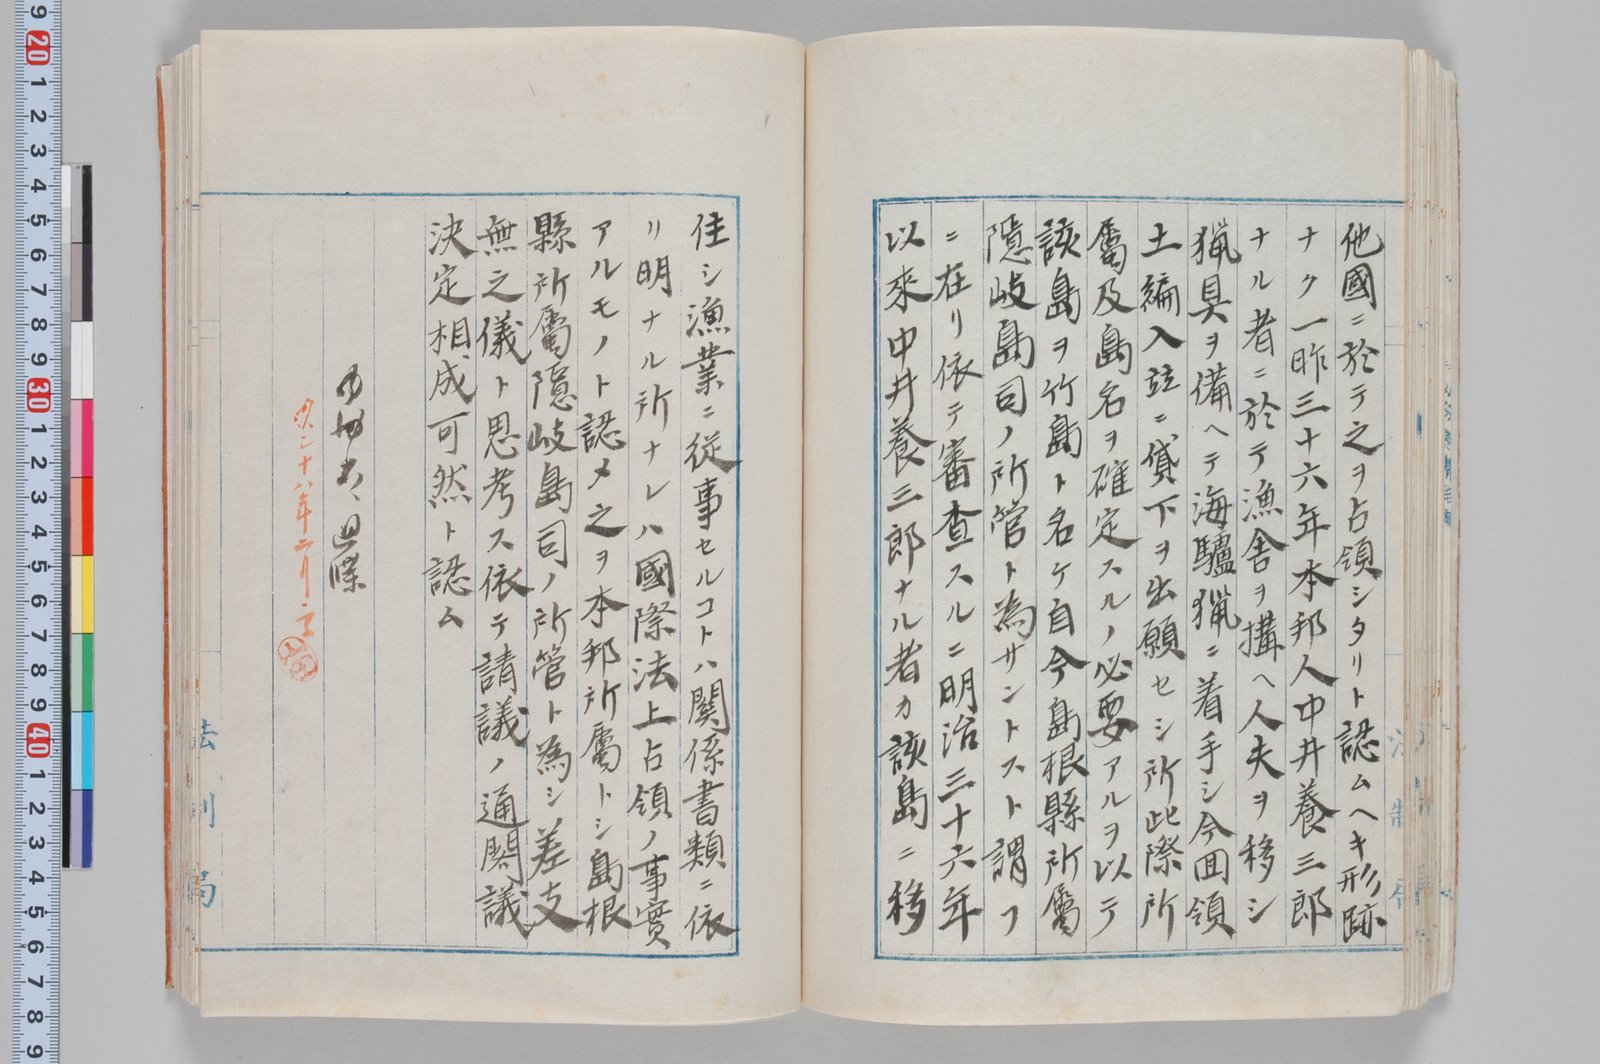 他國ニ於テ之ヲ占領シタリト認ムヘキ形跡
ナク一昨三十六年本邦人中井養三郎
ナル者ニ於テ漁舎ヲ搆ヘ人夫ヲ移シ
猟具ヲ備ヘテ海驢猟ニ着手シ今回領
土編入竝ニ貸下ヲ出願セシ所此際所
屬及島名ヲ確定スルノ必要アルヲ以テ
該島ヲ竹島ト名ケ自今島根縣所屬
隠岐島司ノ所管ト為サントスト謂フ
ニ在リ依テ審査スルニ明治三十六年
以来中井養三郎ナル者カ該島ニ移
住シ漁業ニ従事セルコトハ関係書類ニ依
リ明ナル所ナレハ國際法上占領ノ事實
アルモノト認メ之ヲ本邦所屬トシ島根
縣所屬隠岐島司ノ所管ト為シ差支
無之儀ト思考ス依テ請議ノ通閣議
決定相成可然ト認ム
三十八年二月
法制局
9 20 1 2 3 4 5 6 7 8 9 30 1 2 3 4 5 6 7 8 9 40 1 2 3 4 5 6 7 8 9